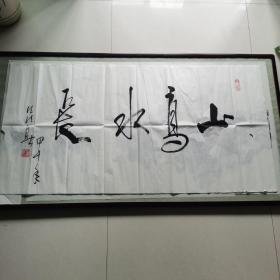 山高水長
甲午年